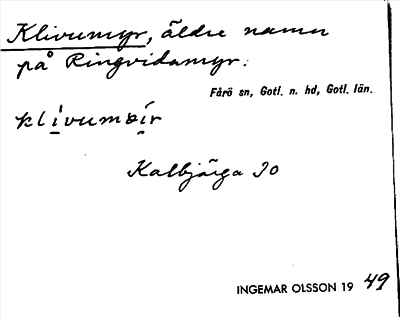 Klivumyr, äldre namn
på Ringvidamyr.
Fårö sn, Gotl. n. hd, Gotl. län.
Kalbjärga 30
INGEMAR OLSSON 19 49